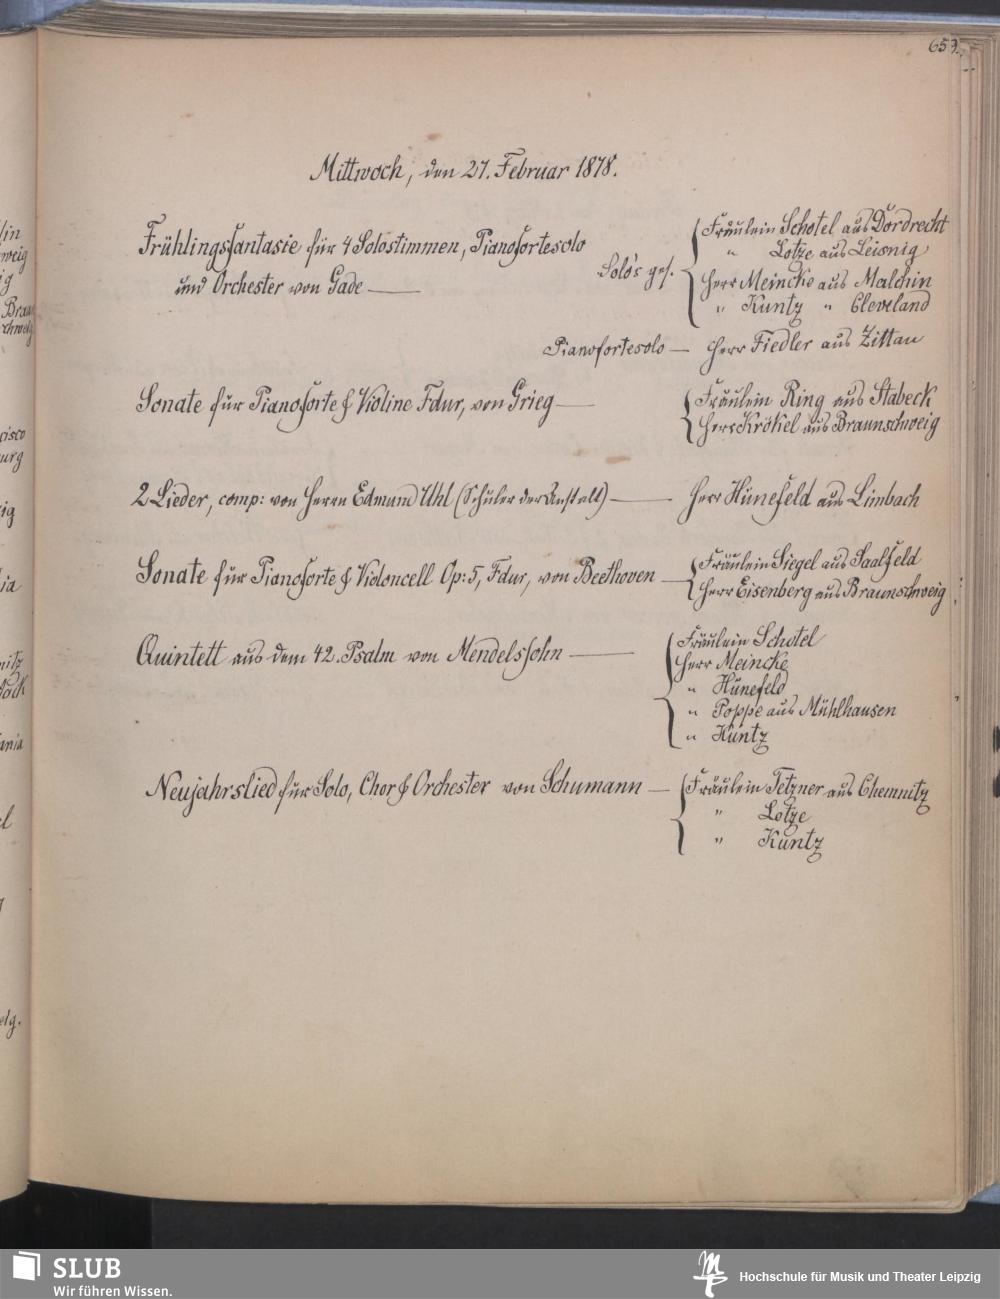 657.
Mittwoch, den 27. Februar 1878.
Frühlingsfantasie für 4 Solostimmen, Pianofortesolo
und Orchester von Gade —
Solo's ges.
Fräulein Schotel aus Dordrecht
" Lotze aus Leisnig
Herr Meincke aus Malchin
" Kuntz " Cleveland
Pianofortesolo — Herr Fiedler aus Zittau
Sonate für Pianoforte & Violine Fdur, von Grieg —
Fräulein Ring aus Stabeck
Herr Krökel aus Braunschweig
2 Lieder, comp: von Herrn Edmund Uhl (Schüler der Anstalt) — Herr Hünefeld aus Limbach
Sonate für Pianoforte & Violoncell Op: 5, Fdur, von Beethoven —
Fräulein Siegel aus Saalfeld
Herr Eisenberg aus Braunschweig
Quintett aus dem 42. Psalm von Mendelssohn —
Fräulein Schotel
Herr Meincke
" Hünefeld
" Poppe aus Mühlhausen
" Kuntz
Neujahrslied für Solo, Chor & Orchester von Schumann —
Fräulein Tetzner aus Chemnitz
" Lotze
" Kuntz
SLUB
Wir führen Wissen.
Hochschule für Musik und Theater Leipzig